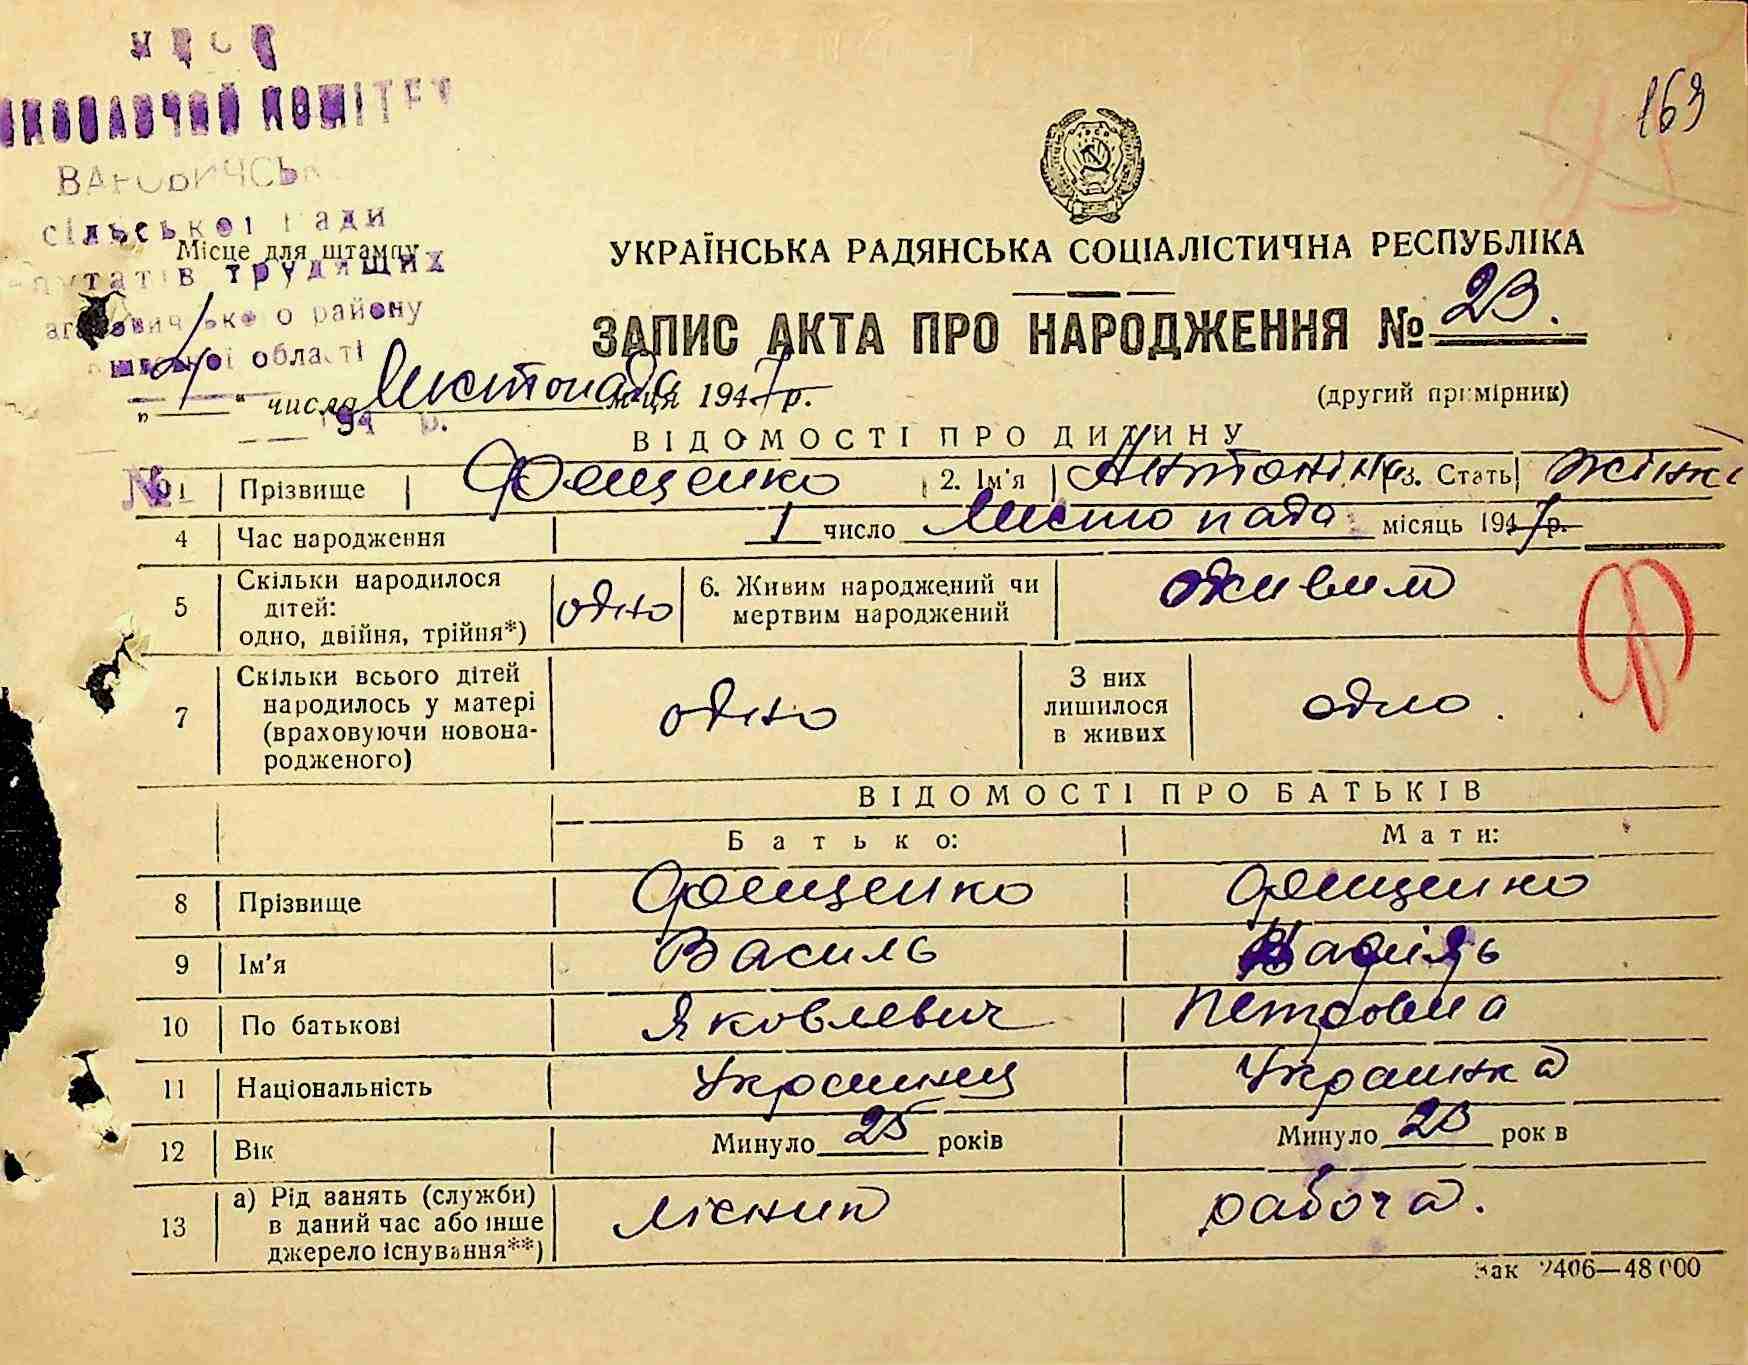 УРСР
ВИКОНАВЧИЙ КОМІТЕТ
сільської ради
депутатів трудящих
району
області
Місце для штампу
163
УКРАЇНСЬКА РАДЯНСЬКА СОЦІАЛІСТИЧНА РЕСПУБЛІКА
ЗАПИС АКТА ПРО НАРОДЖЕННЯ № 23.
(другий примірник)
„ 1 “ числа Листопада м-ця 1947 р.
ВІДОМОСТІ ПРО ДИТИНУ
№ 1 Прізвище Фещенко 2. Ім'я Антоніна 3. Стать жіноч
4 Час народження 1 число Листопада місяць 1947 р.
5 Скільки народилося дітей: одно, двійня, трійня*) одно 6. Живим народжений чи мертвим народжений живим
7 Скільки всього дітей народилось у матері (враховуючи новонародженого) одно З них лишилося в живих одно.
ВІДОМОСТІ ПРО БАТЬКІВ
Батько: Мати:
8 Прізвище Фещенко Фещенко
9 Ім'я Василь
10 По батькові Яковлевич Петровна
11 Національність Украинец Украинка
12 Вік Минуло 25 років Минуло 23 років
13 а) Рід занять (служби) в даний час або інше джерело існування**) лісник рабоча.
Зак 2406—48 000